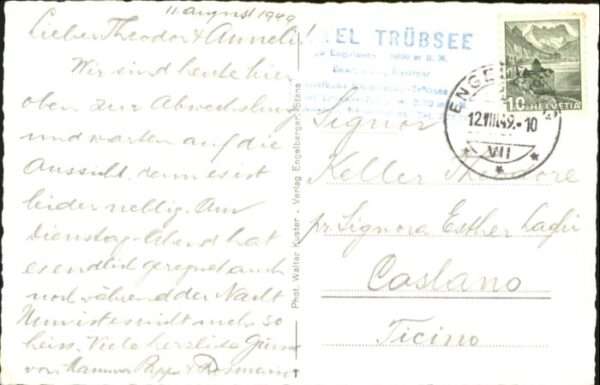 11 august 1949
Lieber Theodor & Anneli!
Wir sind heute hier
oben zur Abwechslung
und warten auf die
Aussicht, denn es ist
leider neblig. Am
Dienstag-Abend hat
es endlich geregnet auch
noch während der Nacht
Nun ist es nicht mehr so
heiss. Viele herzliche Grüsse
von Mamma Pappa &
Phot. Walter Kuster - Verlag Engelberger, Stans
EL TRÜBSEE
ENGE
12.VIII.49.-10
VII
10 HELVETIA
Signor
Keller Theodore
pr. Signora Esther
Caslano
Ticino